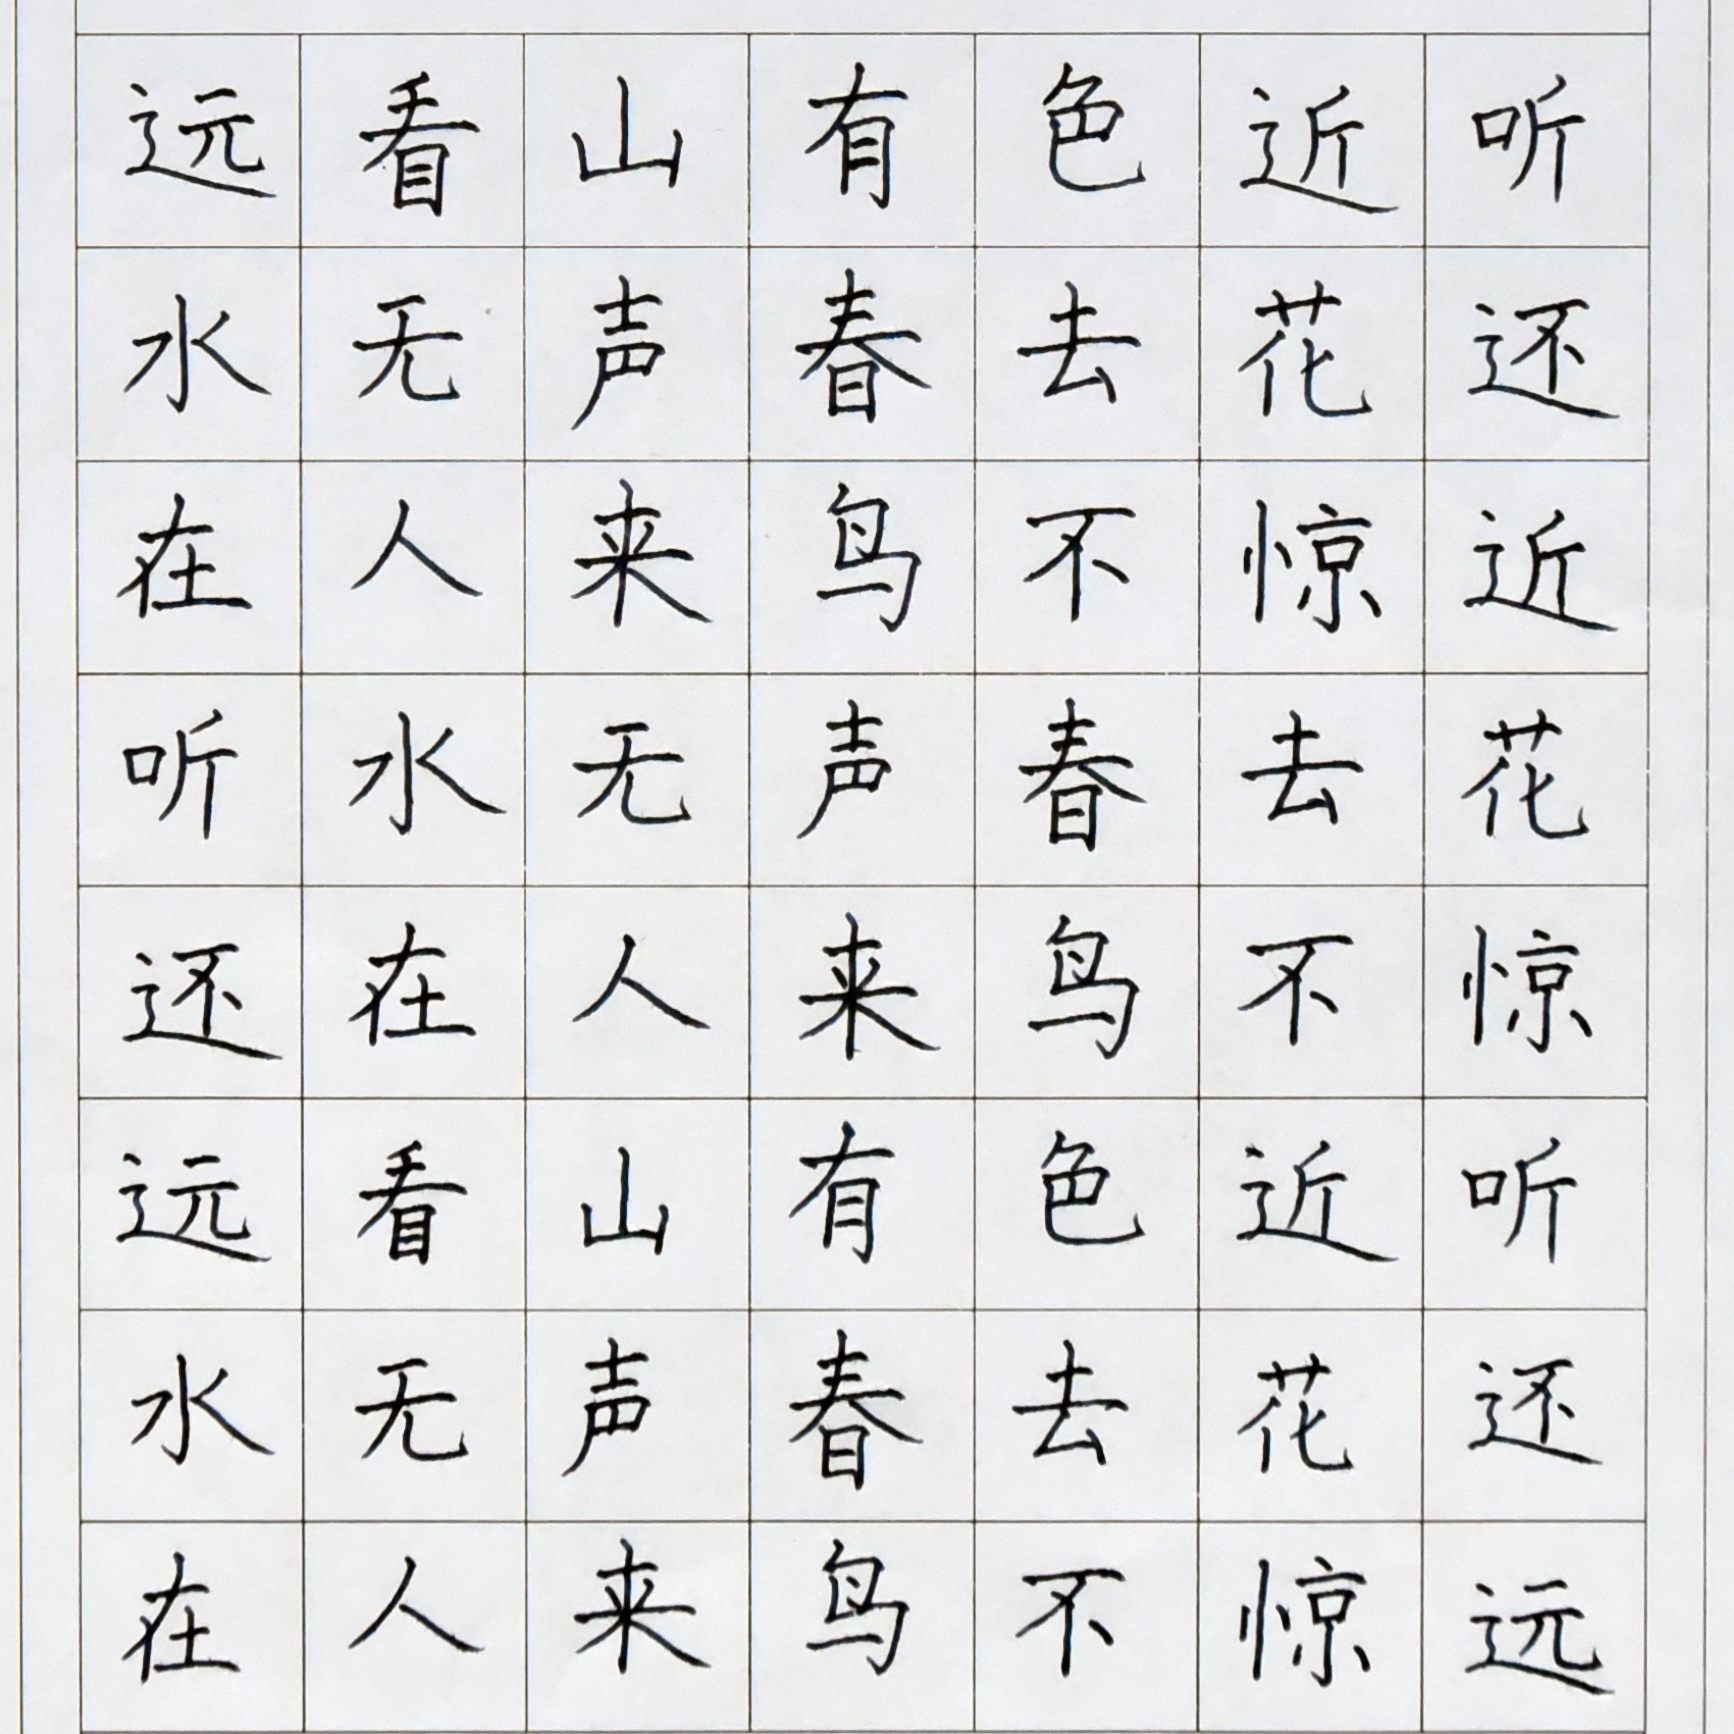 远看山有色近听
水无声春去花还
在人来鸟不惊近
听水无声春去花
还在人来鸟不惊
远看山有色近听
水无声春去花还
在人来鸟不惊远